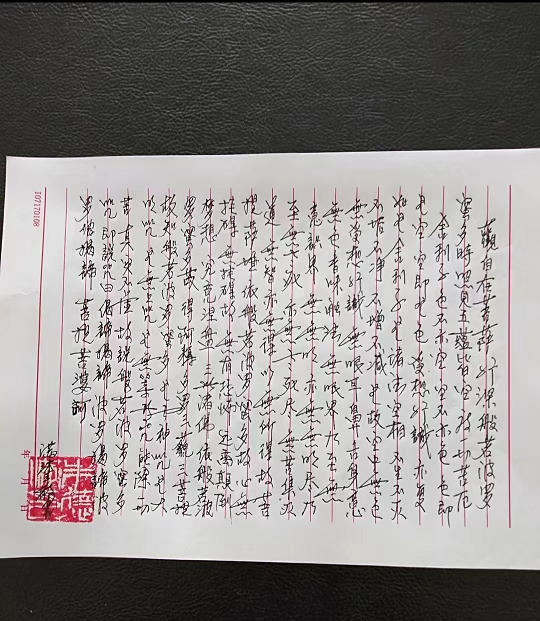 觀自在菩薩行深般若波羅
蜜多時照見五蘊皆空度一切苦厄
舍利子色不亦空空不亦色色即
是空空即是色受想行識亦復
如是舍利子是諸法空相不生不滅
不垢不淨不增不減是故空中無色
無受想行識無眼耳鼻舌身意
無色聲香味觸法無眼界乃至無
意識界無無明亦無無明盡乃
至無老死亦無老死盡無苦集滅
道無智亦無得以無所得故菩
提薩埵依般若波羅蜜多故心無
掛礙無掛礙故無有恐怖遠離顛倒
夢想究竟涅槃三世諸佛依般若波
羅蜜多故得阿耨多羅三藐三菩提
故知般若波羅蜜多是大神咒是大
明咒是無上咒是無等等咒能除一切
苦真實不虛故說般若波羅蜜多
咒即說咒曰揭諦揭諦波羅揭諦波
羅僧揭諦菩提薩婆訶
年 月 日
107170108